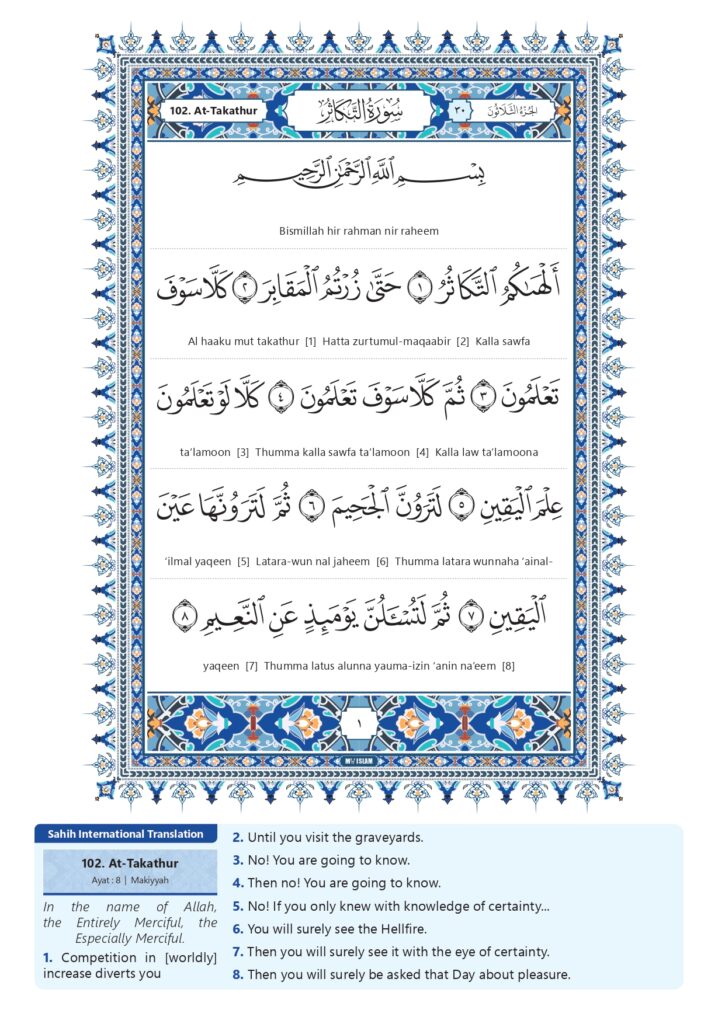 102. At-Takathur
سُورَةُ التَّكَاثُرِ
٣٠
الجُزْءُ الثَّلَاثُونَ
بِسْمِ اللَّهِ الرَّحْمَٰنِ الرَّحِيمِ
Bismillah hir rahman nir raheem
أَلْهَىٰكُمُ التَّكَاثُرُ ١ حَتَّىٰ زُرْتُمُ الْمَقَابِرَ ٢ كَلَّا سَوْفَ
Al haaku mut takathur [1] Hatta zurtumul-maqaabir [2] Kalla sawfa
تَعْلَمُونَ ٣ ثُمَّ كَلَّا سَوْفَ تَعْلَمُونَ ٤ كَلَّا لَوْ تَعْلَمُونَ
ta’lamoon [3] Thumma kalla sawfa ta’lamoon [4] Kalla law ta’lamoona
عِلْمَ الْيَقِينِ ٥ لَتَرَوُنَّ الْجَحِيمَ ٦ ثُمَّ لَتَرَوُنَّهَا عَيْنَ
‘ilmal yaqeen [5] Latara-wun nal jaheem [6] Thumma latara wunnaha ‘ainal-
الْيَقِينِ ٧ ثُمَّ لَتُسْـَٔلُنَّ يَوْمَئِذٍ عَنِ النَّعِيمِ ٨
yaqeen [7] Thumma latus alunna yauma-izin ‘anin na’eem [8]
١
MY ISLAM
Sahih International Translation
102. At-Takathur
Ayat : 8 | Makiyyah
In the name of Allah,
the Entirely Merciful, the
Especially Merciful.
1. Competition in [worldly]
increase diverts you
2. Until you visit the graveyards.
3. No! You are going to know.
4. Then no! You are going to know.
5. No! If you only knew with knowledge of certainty...
6. You will surely see the Hellfire.
7. Then you will surely see it with the eye of certainty.
8. Then you will surely be asked that Day about pleasure.